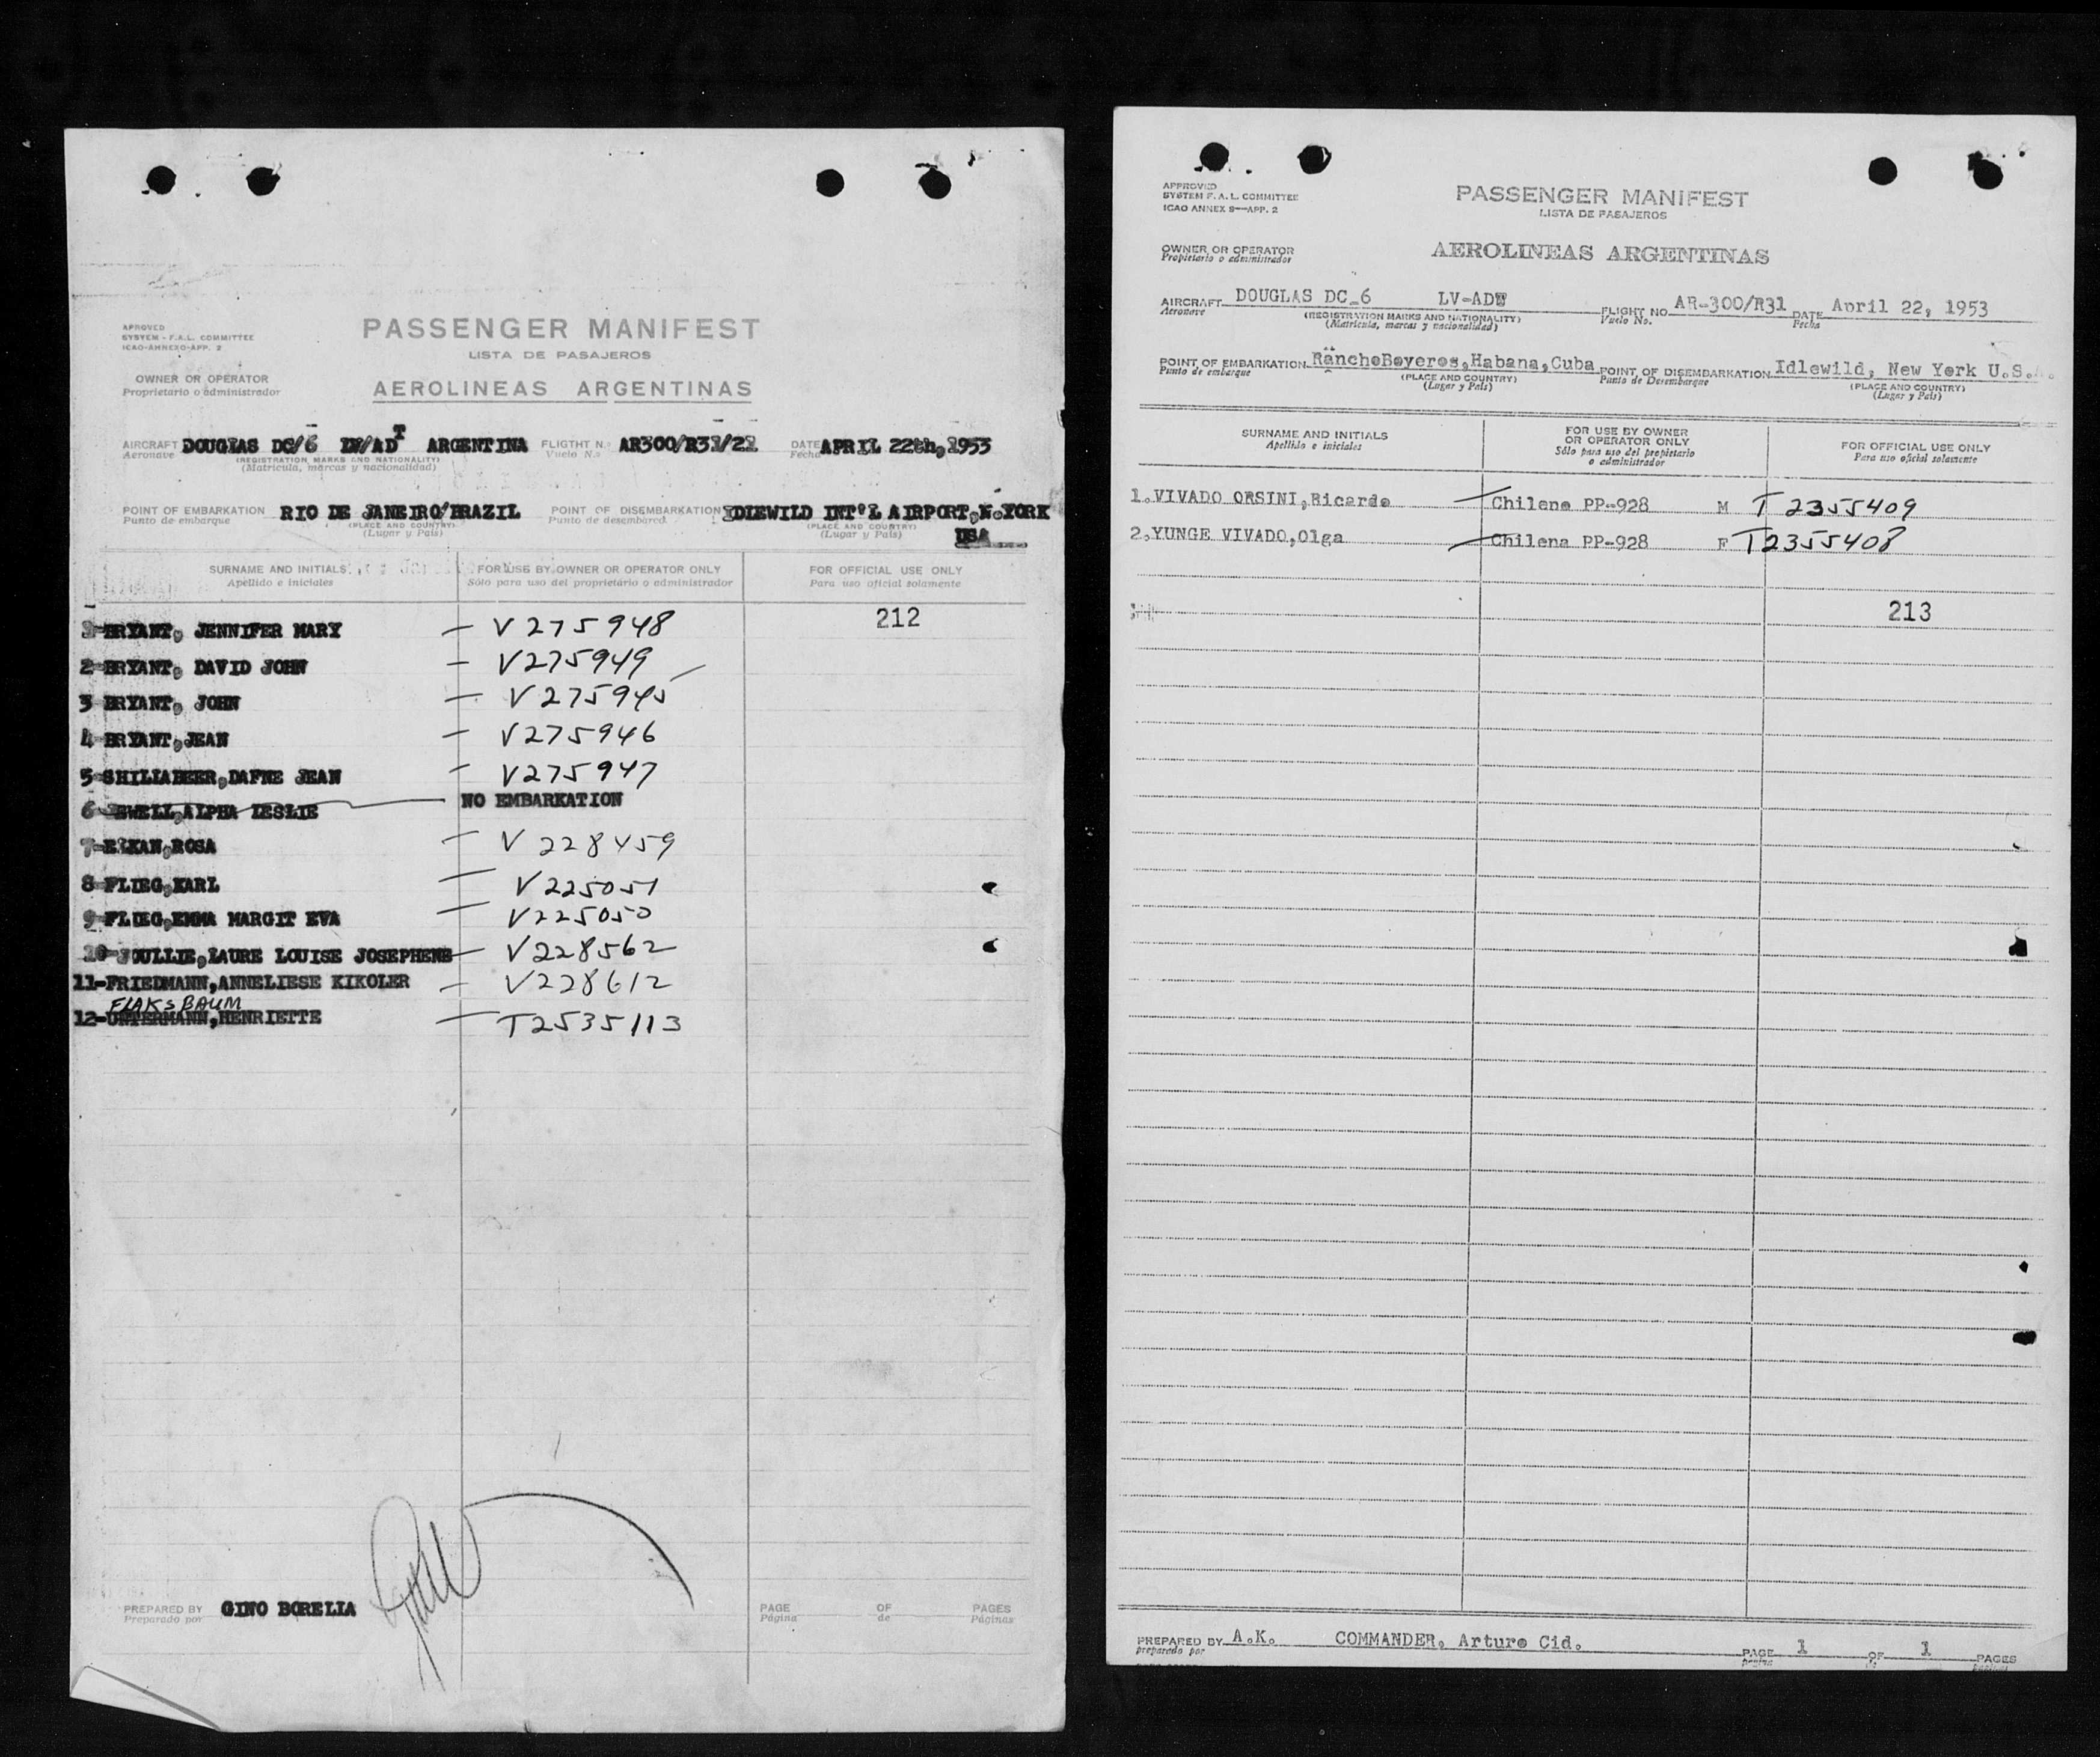 APROVED
SYSTEM - F.A.L. COMMITTEE
ICAO-ANNEXO-APP. 2
PASSENGER MANIFEST
LISTA DE PASAJEROS
OWNER OR OPERATOR
Proprietario o administrador
AEROLINEAS ARGENTINAS
AIRCRAFT DOUGLAS DC/6 LV/ADT ARGENTINA FLIGTHT N.º AR300/R31/21 DATE APRIL 22th, 1953
Aeronave (REGISTRATION, MARKS AND NATIONALITY) Vuelo N.º Fecha
(Matrícula, marcas y nacionalidad)
POINT OF EMBARKATION RIO DE JANEIRO/BRAZIL POINT OF DISEMBARKATION IDLEWILD INT'L AIRPORT, N.YORK
Punto de embarque (PLACE AND COUNTRY) Punto de desembarco (PLACE AND COUNTRY)
(Lugar y País) (Lugar y País) USA
SURNAME AND INITIALS FOR USE BY OWNER OR OPERATOR ONLY FOR OFFICIAL USE ONLY
Apellido e iniciales Sólo para uso del proprietário o administrador Para uso oficial solamente
BRYANT, JENNIFER MARY V275948 212
2-BRYANT, DAVID JOHN V275949
3 BRYANT, JOHN V275945
4-BRYANT, JEAN V275946
5-SHILLABEER, DAFNE JEAN V275947
6- ALPHA LESLIE NO EMBARKATION
7-ELKAN, ROSA V 228459
8-FLIEG, KARL V225051
9-FLIEG, EMMA MARGIT EVA V225050
10-JOULLIE, LAURE LOUISE JOSEPHENE V228562
11-FRIEDMANN, ANNELIESE KIKOLER V228612
FLAKSBAUM
12-UNTERMANN, HENRIETTE T2535113
PREPARED BY GINO BORELIA PAGE OF PAGES
Preparado por Página de Páginas
APPROVED
SYSTEM F.A.L. COMMITTEE
ICAO ANNEX 9—APP. 2
PASSENGER MANIFEST
LISTA DE PASAJEROS
OWNER OR OPERATOR
Propietario o administrador
AEROLINEAS ARGENTINAS
AIRCRAFT DOUGLAS DC-6 LV-ADT FLIGHT NO AR-300/R31 DATE April 22, 1953
Aeronave (REGISTRATION MARKS AND NATIONALITY) Vuelo No. Fecha
(Matrícula, marcas y nacionalidad)
POINT OF EMBARKATION RanchoBoyeros, Habana, Cuba POINT OF DISEMBARKATION Idlewild, New York U.S.A.
Punto de embarque (PLACE AND COUNTRY) Punto de Desembarque (PLACE AND COUNTRY)
(Lugar y País) (Lugar y País)
SURNAME AND INITIALS
Apellido e iniciales
FOR USE BY OWNER
OR OPERATOR ONLY
Sólo para uso del propietario
o administrador
FOR OFFICIAL USE ONLY
Para uso oficial solamente
1.VIVADO ORSINI, Ricardo Chileno PP-928 M T 2355409
2.YUNGE VIVADO, Olga Chilena PP-928 F T2355408
213
PREPARED BY A.K. COMMANDER. Arturo Cid. PAGE 1 OF 1 PAGES
preparado por